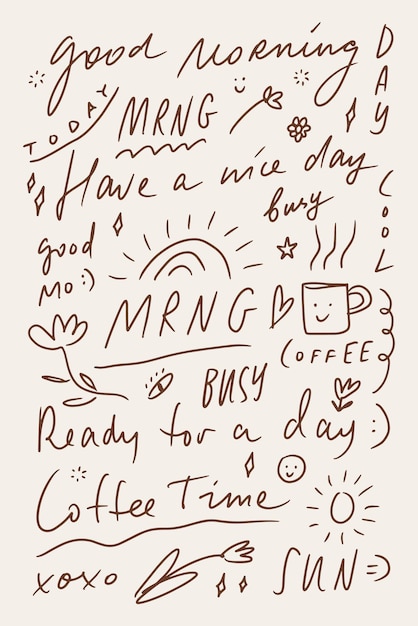 Good Morning
DAY
TODAY
MRNG
Have a nice day
busy
COOL
good
Mo:)
MRNG
COFFEE
BUSY
Ready for a day:)
Coffee Time
xoxo
SUN=)